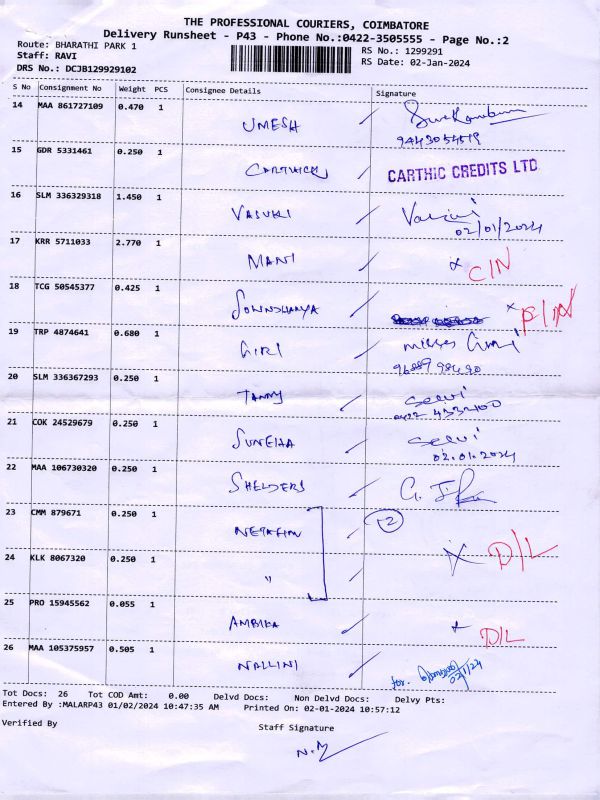 THE PROFESSIONAL COURIERS, COIMBATORE
Delivery Runsheet - P43 - Phone No.:0422-3505555 - Page No.:2
Route: BHARATHI PARK 1 RS No.: 1299291
Staff: RAVI RS Date: 02-Jan-2024
DRS No.: DCJB129929102
S No Consignment No Weight PCS Consignee Details Signature
14 MAA 861727109 0.470 1
UMESH
9443054519
15 GDR 5331461 0.250 1
CARTHICK CARTHIC CREDITS LTD
16 SLM 336329318 1.450 1
VASUKI
02/01/2024
17 KRR 5711033 2.770 1
MANI x C/N
18 TCG 50545377 0.425 1
SOWNDHANYA x
19 TRP 4874641 0.680 1
GIRI
20 SLM 336367293 0.250 1
TANNY Selvi
0422 4332100
21 COK 24529679 0.250 1
SUNEHA Selvi
02.01.2024
22 MAA 106730320 0.250 1
SHELDERS
23 CMM 879671 0.250 1
NETAFIM 12
24 KLK 8067320 0.250 1
" x D/L
25 PRO 15945562 0.055 1
AMBIKA x D/L
26 MAA 105375957 0.505 1
NALLINI for.
02/1/24
Tot Docs: 26 Tot COD Amt: 0.00 Delvd Docs: Non Delvd Docs: Delvy Pts:
Entered By :MALARP43 01/02/2024 10:47:35 AM Printed On: 02-01-2024 10:57:12
Verified By Staff Signature